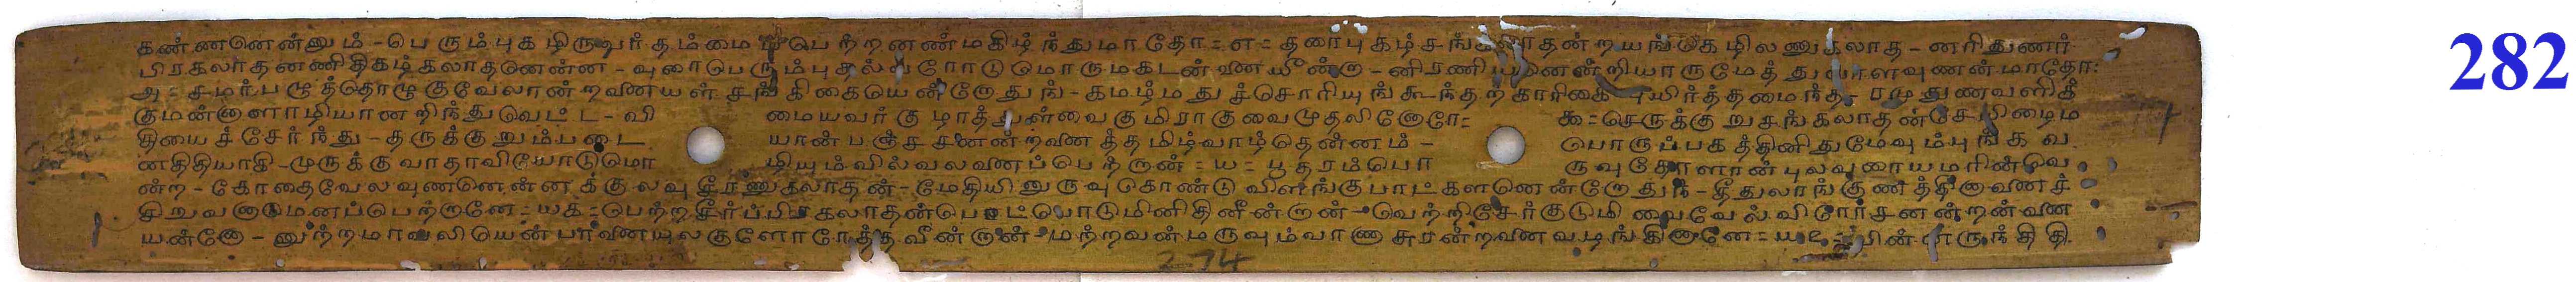 கண்ணனென்னும் - பெரும்புக ழிருவர் தம்மை பெற்றனண் மகிழ்ந்துமாதோ = எ = தரைபுகழ்சங் தன்றயங்கெ ழில லாத - னரிதுணர்
பிரகலாதனணி திகழ்கலாதனென்ன - வுரைபெரும்புகல் ரோடு மொருமகடன்வணயீன்ற - னிரணி னென்றியாருமேத்து வுணன்மாதோ =
அ = சமர்படி த்தொழுகுவேலான்றவணயள் சங்கிகையென்றே துங் - கமழ்மது ச்சொரியுங்கூந்தற்காரிகை யிர்த்தமைந்த - ரமுதுணவளித்
குமன்னாளாழியானறிந்துவெட்ட - வி மையவர் குழாத் வைகுமிராகுவை முதலினோரே = ௯ = செருக்கு றுசங்கலாதன்சே யிழைம
தியைச்சேர்ந்து - தருக்குறும்படை யான் பஞ்ச சனன்றவணத்தமிழ்வாழ்தென்னம் - பொருப்பகத்தினிதுமேவும்புங்கவ
னதிதியாகி - முருக்குவாதாவியோடுமொ ழியும்வில்வலவணப்பெற்றான் = ய = பூதரம்பொ ருவுதோளான் புலவுரையமரின்வெ
ன்ற - கோதைவேலவுணனென்னக்குலவு கலாதன் - மேதியினுருவு கொண்டு விளங்குபாட்களனென்றே துந் - தீதுலாங்குணத்தினாவணச்
சிறுவனாமெனப்பெற்றானே = யக = பெற்றசீர்ப்பிரகலாதன்பெ ட்பொடுமினிதினீன்றான் - வெற்றிசேர்குடுமி வைவேல்விடோர்சனன்றன்வண
யன்னோ - னுற்றமாவலியென்பாவணயுலகுளோரேத்தவீன்றான் - மற்றவன்மருவும்வாணாசுரன்றவணவழங்கினானே = ய௨ = பின் ருந்திதி
274
282